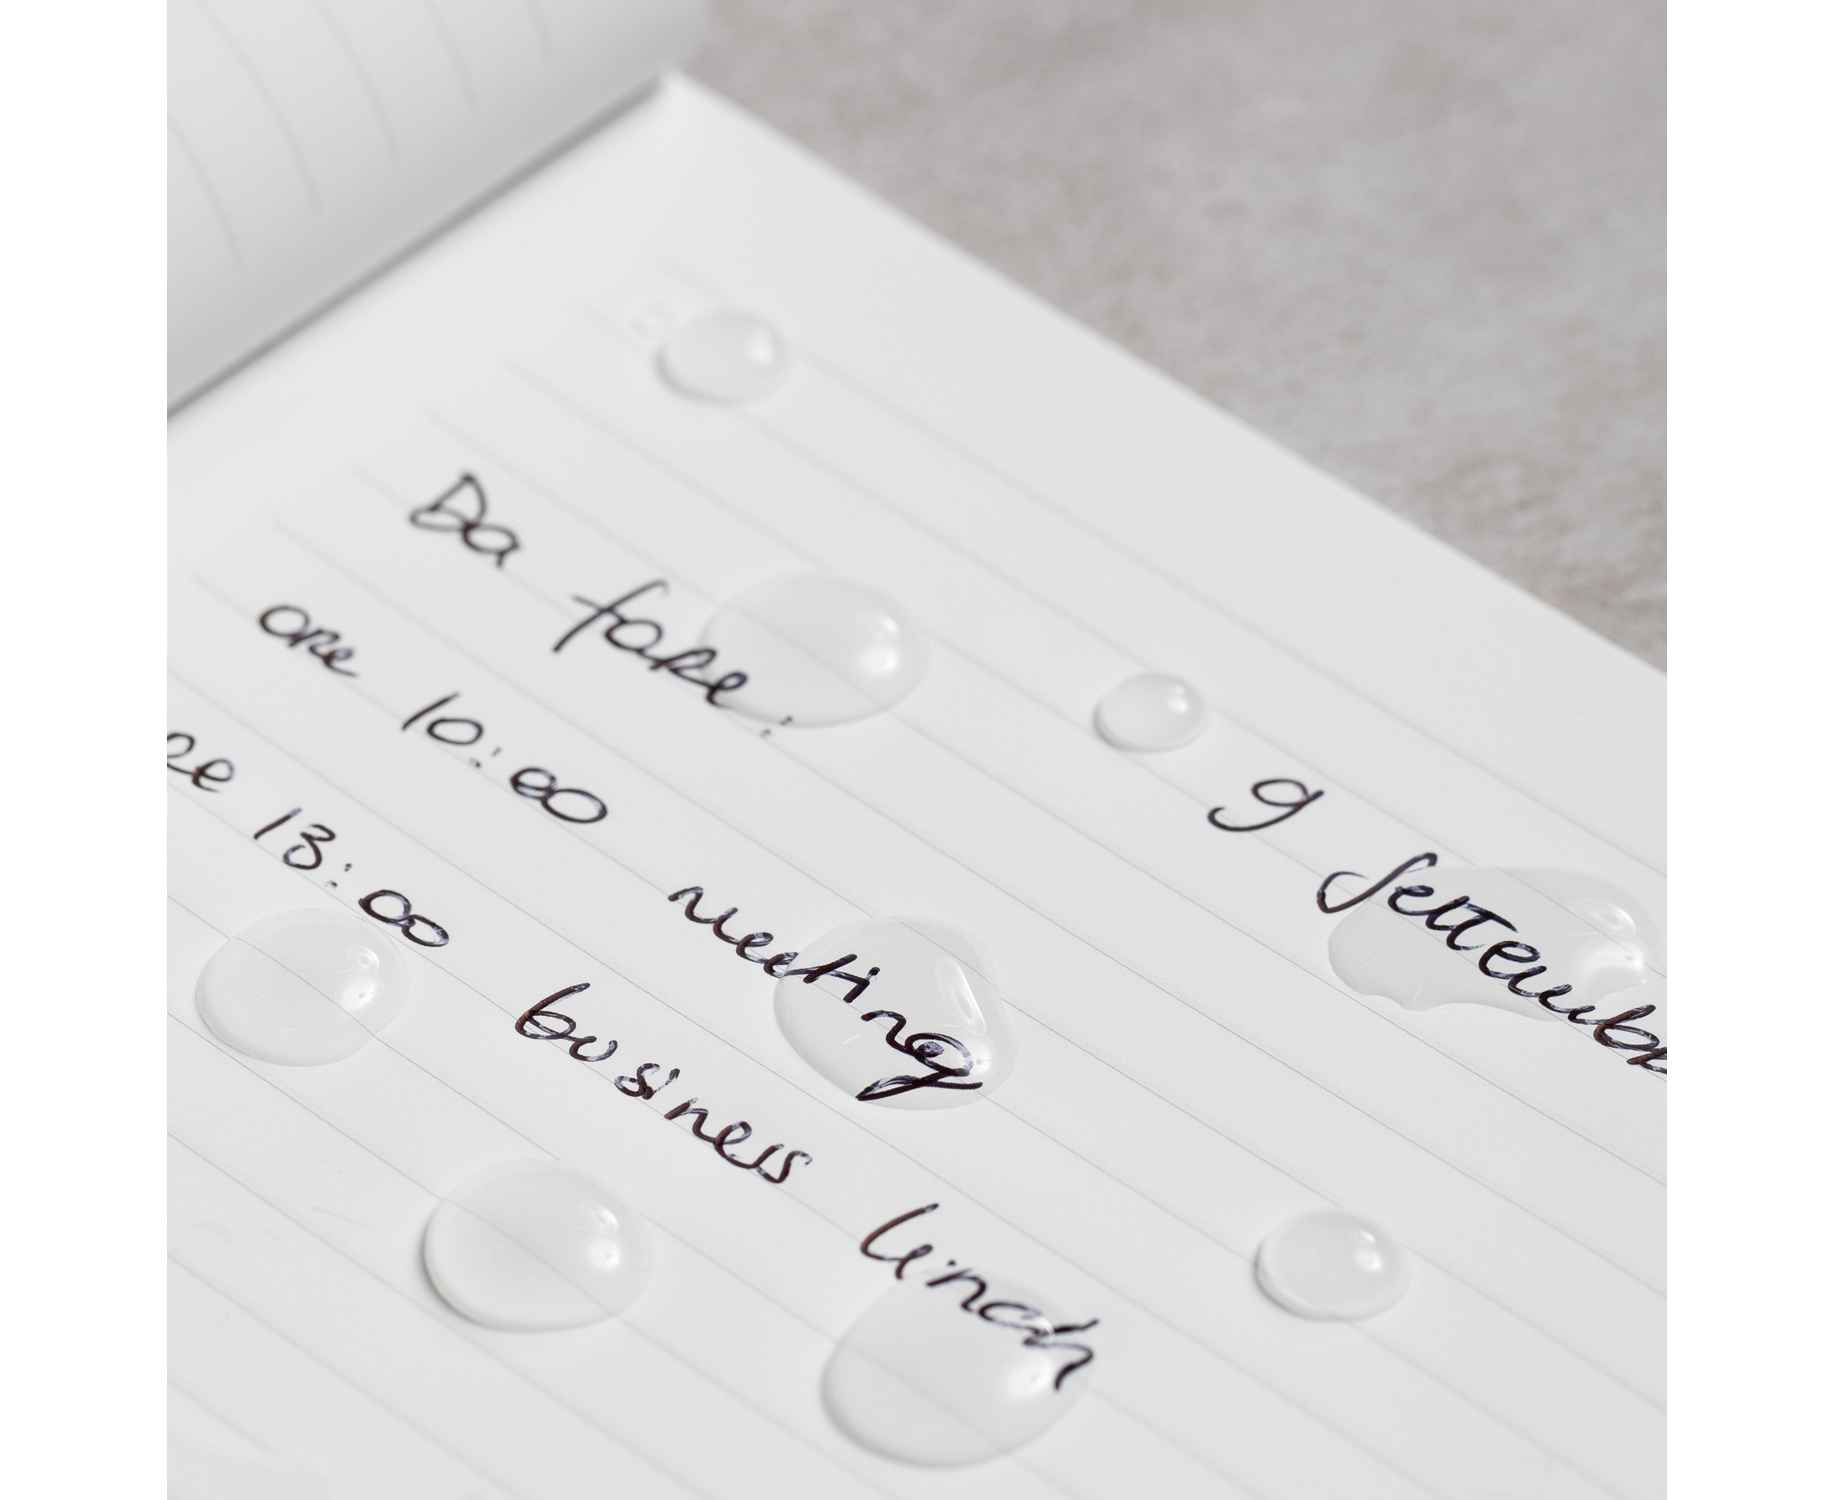 Da fare: 9 settemb
ore 10:00 meeting
re 13:00 business linch